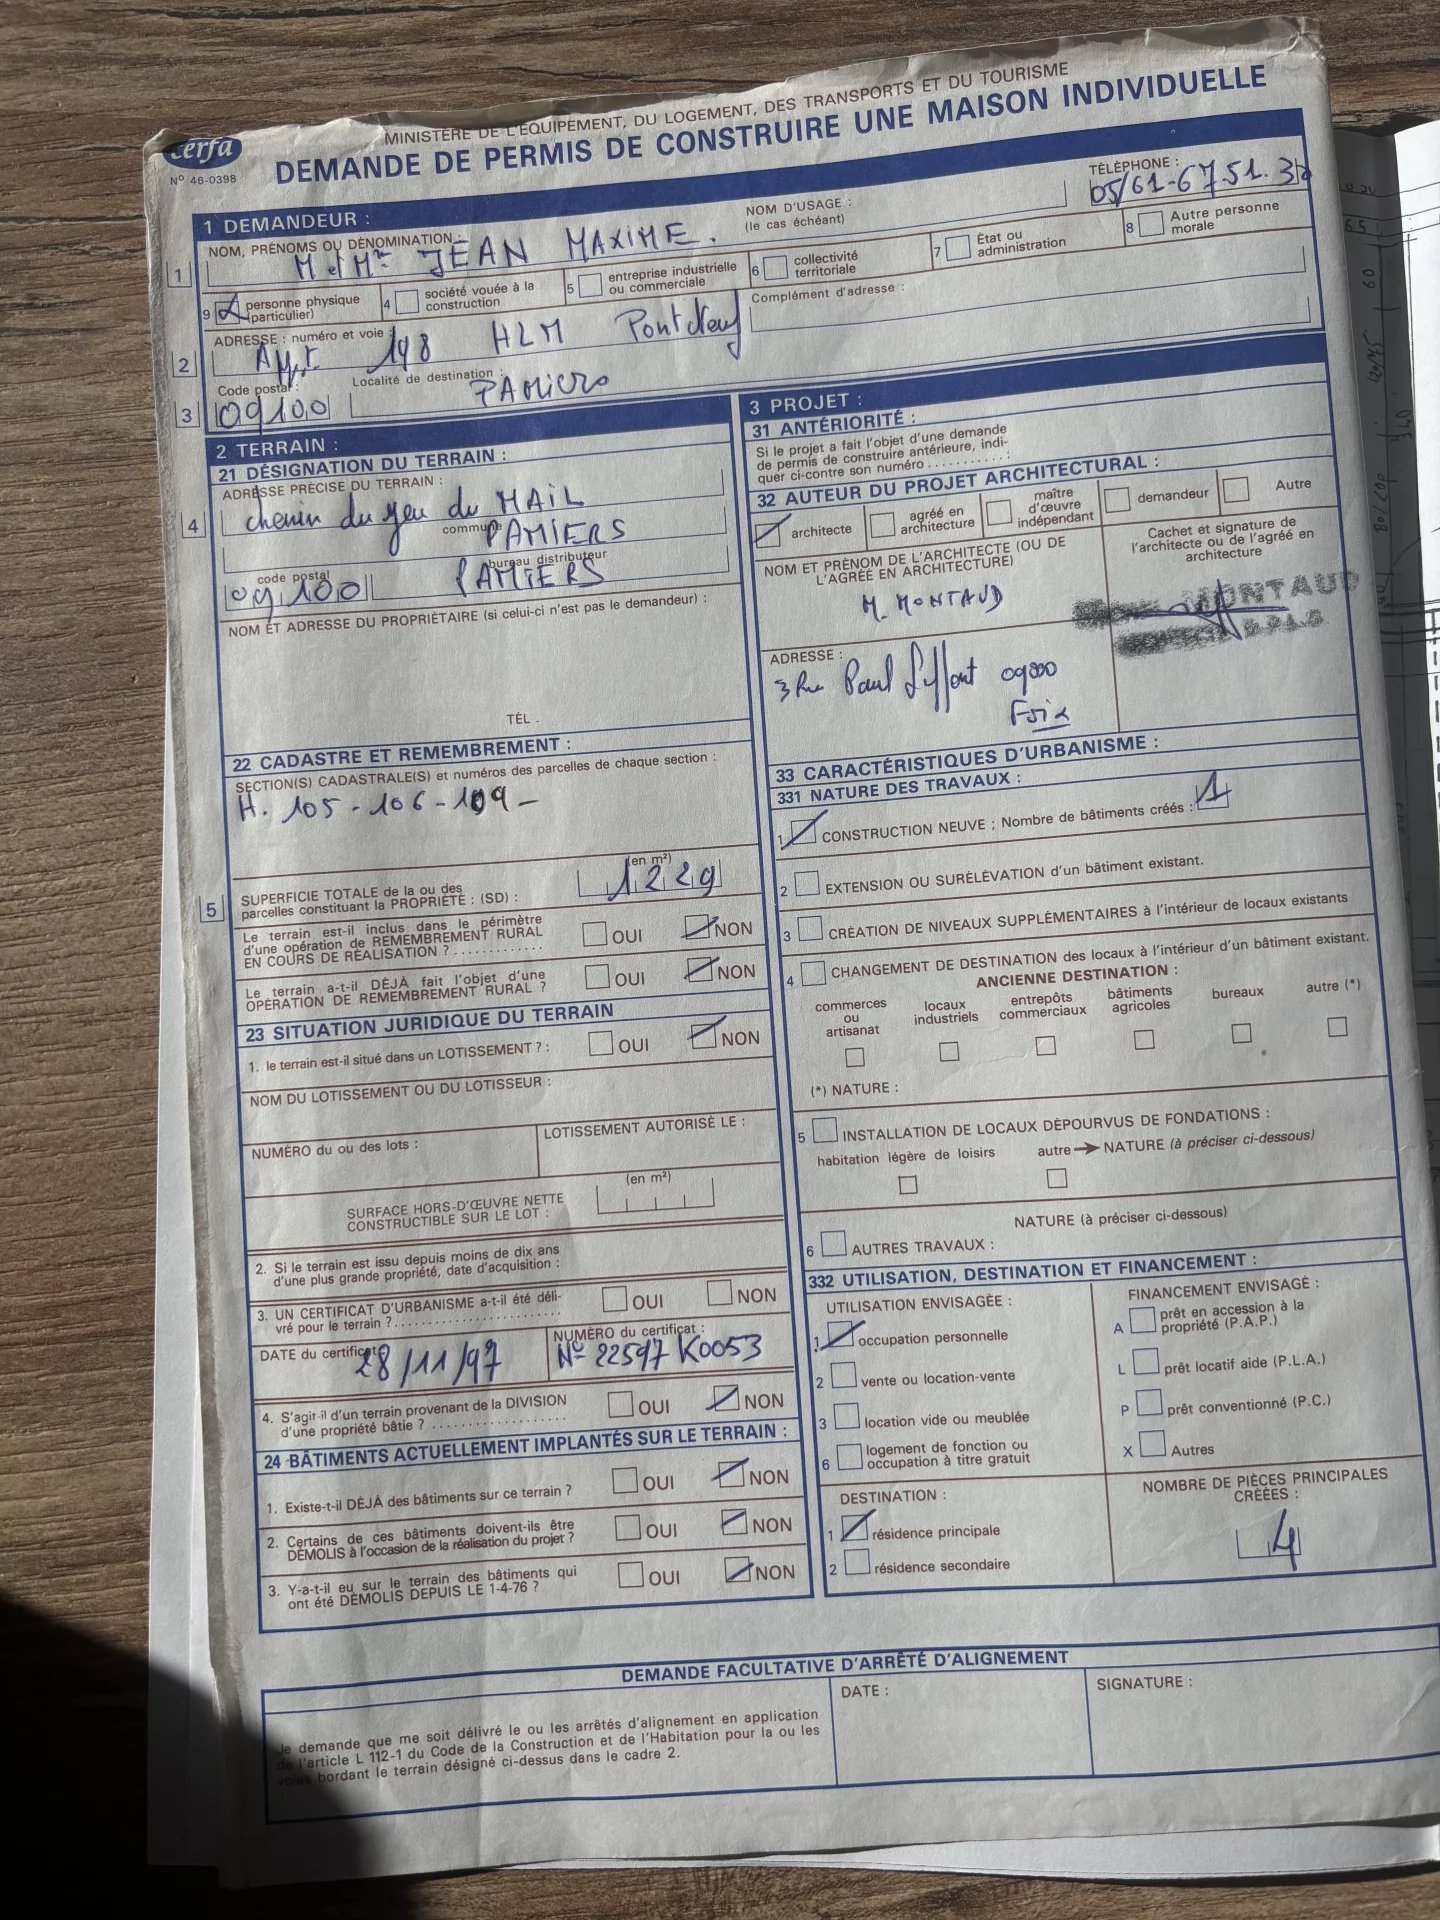 MINISTÈRE DE L'ÉQUIPEMENT, DU LOGEMENT, DES TRANSPORTS ET DU TOURISME
cerfa
N° 46-0398
DEMANDE DE PERMIS DE CONSTRUIRE UNE MAISON INDIVIDUELLE
1 DEMANDEUR :
NOM, PRÉNOMS OU DÉNOMINATION :
NOM D'USAGE :
(le cas échéant)
TÉLÉPHONE :
05/61-67 51.32
1
M et Mme JEAN MAXIME.
9 personne physique
(particulier)
4 société vouée à la
construction
5 entreprise industrielle
ou commerciale
6 collectivité
territoriale
7 État ou
administration
8 Autre personne
morale
ADRESSE : numéro et voie :
Complément d'adresse :
2
Appt. 148 HLM Pont Neuf
Code postal :
Localité de destination :
3
09100
PAMIERS
2 TERRAIN :
21 DÉSIGNATION DU TERRAIN :
ADRESSE PRÉCISE DU TERRAIN :
4
chemin du jeu du MAIL
commune
PAMIERS
code postal
bureau distributeur
09100
PAMIERS
NOM ET ADRESSE DU PROPRIÉTAIRE (si celui-ci n'est pas le demandeur) :
TÉL .
22 CADASTRE ET REMEMBREMENT :
SECTION(S) CADASTRALE(S) et numéros des parcelles de chaque section :
H. 105 - 106 - 109 -
5
SUPERFICIE TOTALE de la ou des
parcelles constituant la PROPRIÉTÉ : (SD) :
(en m²)
1229
Le terrain est-il inclus dans le périmètre
d'une opération de REMEMBREMENT RURAL
EN COURS DE RÉALISATION ? . . . . . . . . . . .
OUI NON
Le terrain a-t-il DÉJÀ fait l'objet d'une
OPÉRATION DE REMEMBREMENT RURAL ?
OUI NON
23 SITUATION JURIDIQUE DU TERRAIN
1. le terrain est-il situé dans un LOTISSEMENT ? :
OUI NON
NOM DU LOTISSEMENT OU DU LOTISSEUR :
NUMÉRO du ou des lots :
LOTISSEMENT AUTORISÉ LE :
SURFACE HORS-D'ŒUVRE NETTE
CONSTRUCTIBLE SUR LE LOT :
(en m²)
2. Si le terrain est issu depuis moins de dix ans
d'une plus grande propriété, date d'acquisition :
3. UN CERTIFICAT D'URBANISME a-t-il été déli-
vré pour le terrain ? . . . . . . . . . . . . . . . . . . . .
OUI NON
DATE du certificat
28/11/97
NUMÉRO du certificat :
No 22597 K0053
4. S'agit-il d'un terrain provenant de la DIVISION
d'une propriété bâtie ? . . . . . . . . . . . . . . . . . .
OUI NON
24 BÂTIMENTS ACTUELLEMENT IMPLANTÉS SUR LE TERRAIN :
1. Existe-t-il DÉJÀ des bâtiments sur ce terrain ?
OUI NON
2. Certains de ces bâtiments doivent-ils être
DÉMOLIS à l'occasion de la réalisation du projet ?
OUI NON
3. Y-a-t-il eu sur le terrain des bâtiments qui
ont été DÉMOLIS DEPUIS LE 1-4-76 ?
OUI NON
3 PROJET :
31 ANTÉRIORITÉ :
Si le projet a fait l'objet d'une demande
de permis de construire antérieure, indi-
quer ci-contre son numéro . . . . . . . . . . :
32 AUTEUR DU PROJET ARCHITECTURAL :
architecte
agréé en
architecture
maître
d'œuvre
indépendant
demandeur
Autre
NOM ET PRÉNOM DE L'ARCHITECTE (OU DE
L'AGRÉÉ EN ARCHITECTURE)
Cachet et signature de
l'architecte ou de l'agréé en
architecture
M. MONTAUD
MONTAUD
D.P.L.G
ADRESSE :
3 Rue Paul 09000
Foix
33 CARACTÉRISTIQUES D'URBANISME :
331 NATURE DES TRAVAUX :
1 CONSTRUCTION NEUVE ; Nombre de bâtiments créés : 1
2 EXTENSION OU SURÉLÉVATION d'un bâtiment existant.
3 CRÉATION DE NIVEAUX SUPPLÉMENTAIRES à l'intérieur de locaux existants
4 CHANGEMENT DE DESTINATION des locaux à l'intérieur d'un bâtiment existant.
ANCIENNE DESTINATION :
commerces
ou
artisanat
locaux
industriels
entrepôts
commerciaux
bâtiments
agricoles
bureaux
autre (*)
(*) NATURE :
5 INSTALLATION DE LOCAUX DÉPOURVUS DE FONDATIONS :
habitation légère de loisirs
autre → NATURE (à préciser ci-dessous)
NATURE (à préciser ci-dessous)
6 AUTRES TRAVAUX :
332 UTILISATION, DESTINATION ET FINANCEMENT :
UTILISATION ENVISAGÉE :
1 occupation personnelle
2 vente ou location-vente
3 location vide ou meublée
6 logement de fonction ou
occupation à titre gratuit
FINANCEMENT ENVISAGÉ :
A prêt en accession à la
propriété (P.A.P.)
L prêt locatif aide (P.L.A.)
P prêt conventionné (P.C.)
X Autres
DESTINATION :
1 résidence principale
2 résidence secondaire
NOMBRE DE PIÈCES PRINCIPALES
CRÉÉES :
4
DEMANDE FACULTATIVE D'ARRÊTÉ D'ALIGNEMENT
Je demande que me soit délivré le ou les arrêtés d'alignement en application
de l'article L 112-1 du Code de la Construction et de l'Habitation pour la ou les
voies bordant le terrain désigné ci-dessus dans le cadre 2.
DATE :
SIGNATURE :